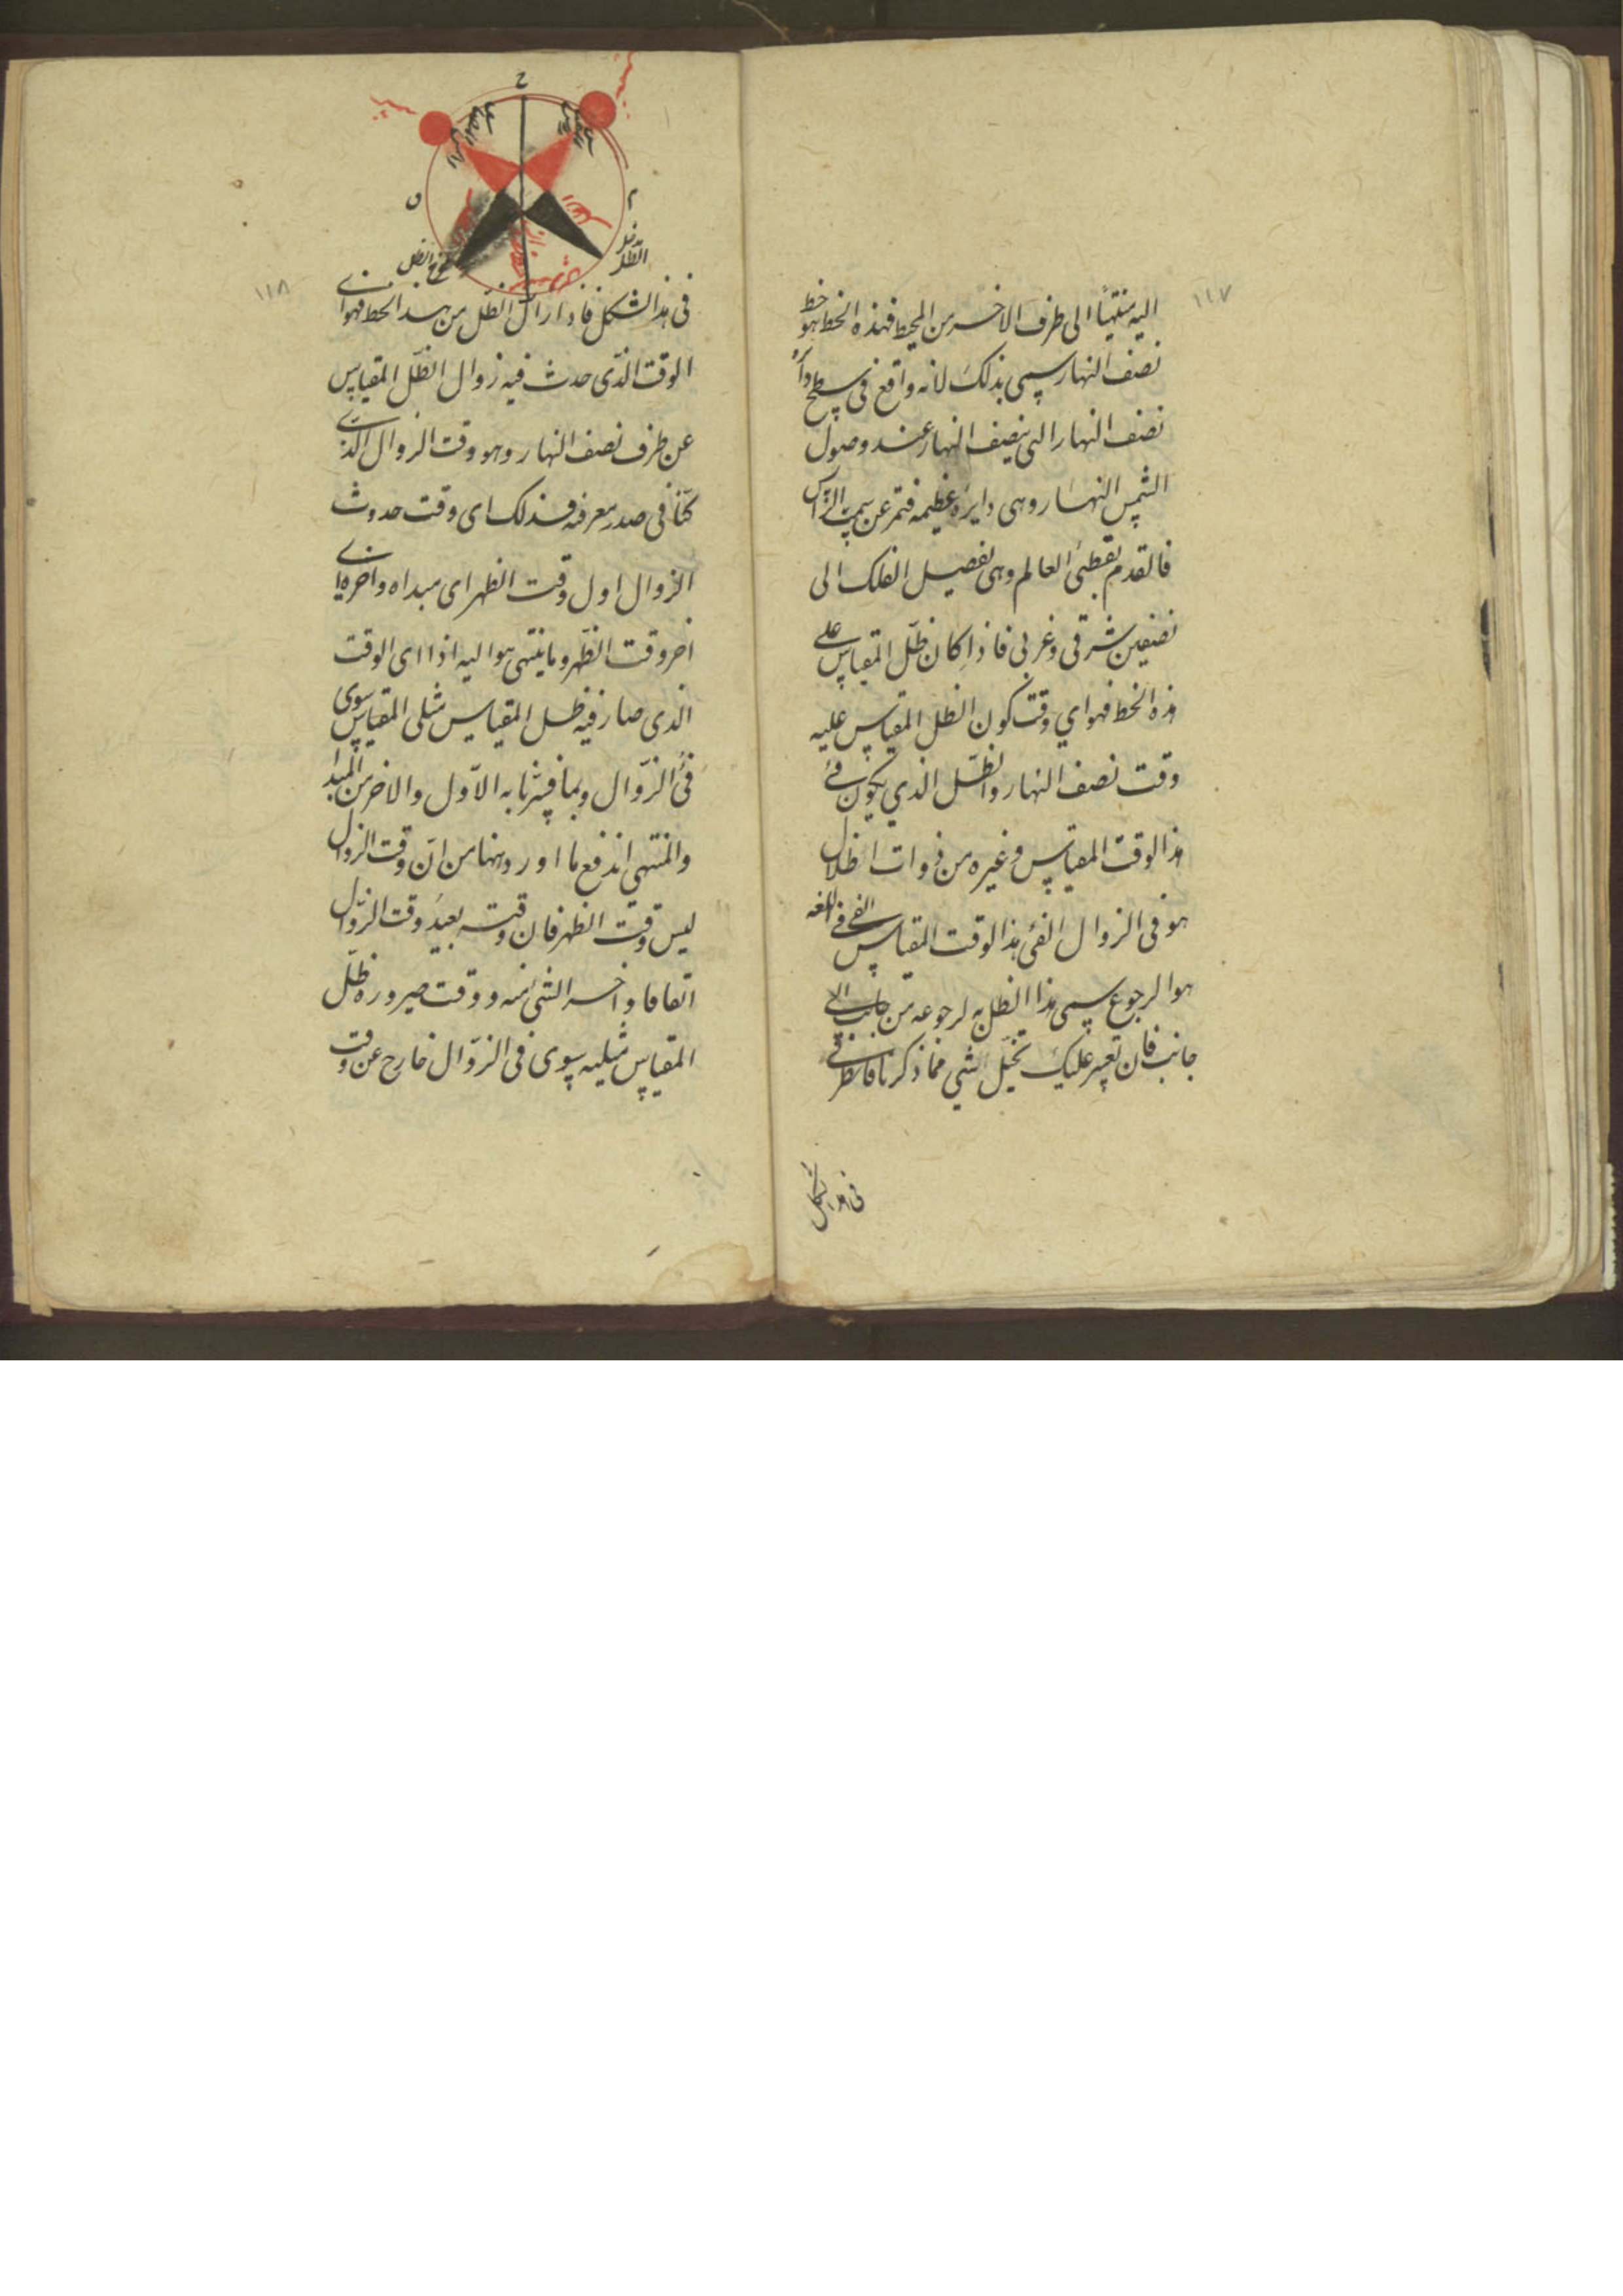 ١١٧
اليه منتهيًا الى طرف الاخر من المحيط فهذه الخط هو خط
نصف النهار سمى بذلك لانه واقع فى سطح دائرة
نصف النهار التى ينصف النهار عند وصول
الشمس النهار وهى دايرة عظيمه فتمر عن سمت الراس
فالقدم بقطبى العالم وهى تفصيل الفلك الى
نصفين شرقى وغربى فاذا كان ظل المقياس على
هذه الخط فهو اي وقت كون الظل المقياس عليه
وقت نصف النهار والظل الذي يكون فى
هذا الوقت المقياس وغيره من ذوات اظلال
هو فى الزوال الفئ هذا الوقت المقياس الفى فى اللغه
هو الرجوع سمى هذا الظل به لرجوعه من جانب الى
جانب فان تعسر عليك تخيل شي مما ذكرنا فانظر فى
فى هذا الشكل
١١٨
ح
الظل
فى هذا الشكل فاذا زال الظل من هذا الخط فهو اى
الوقت الذى حدث فيه زوال الظل المقياس
عن طرف نصف النهار وهو وقت الزوال الذى
كنا فى صدر معرفته فذلك اى وقت حدوث
الزوال اول وقت الظهر اى مبداه واخره اى
اخر وقت الظهر وما ينتهى هو اليه اذا اى الوقت
الذى صار فيه ظل المقياس مثلى المقياس سوى
فئ الزوال وبما فسرنا به الاول والاخر من المبدا
والمنتهى اندفع ما اورد ههنا من ان وقت الزوال
ليس وقت الظهر فان وقته بعيد وقت الزوال
اتفاقا واخر الشئ منه ووقت صيروره ظل
المقياس مثليه سوى فى الزوال خارج عن وقت